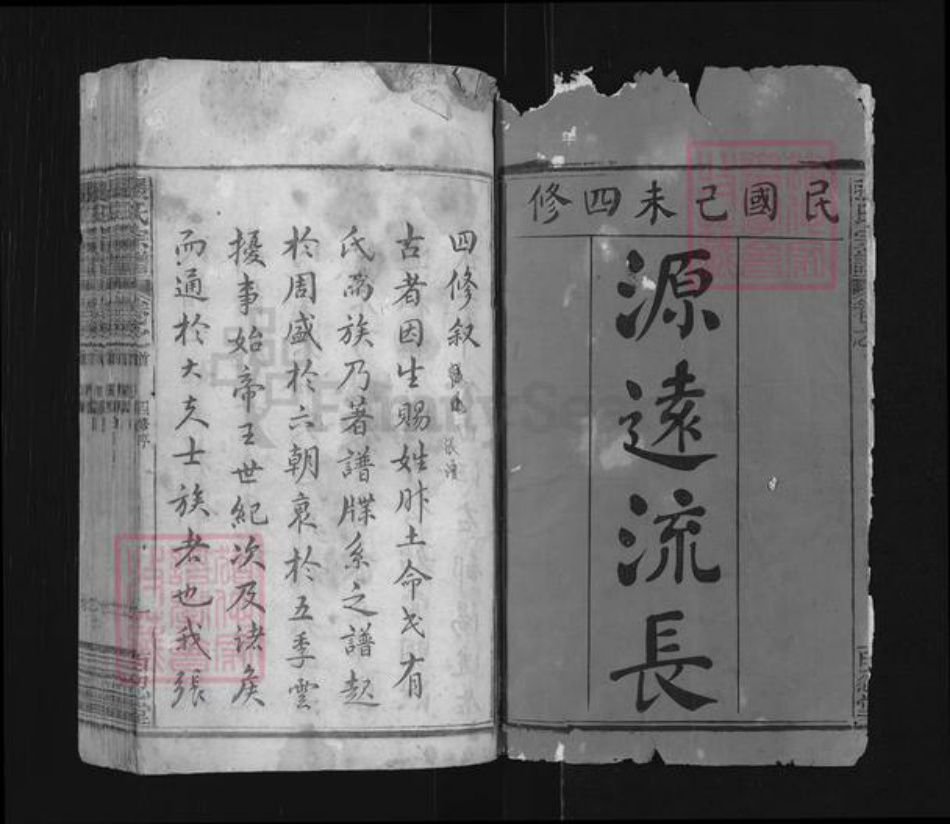 民國己未四修
源遠流長
四修叙
古者因生賜姓胙土命氏有
氏為族乃著譜牒系之譜起
於周盛於六朝衰於五季雲
擾事始帝王世紀次及諸侯
而通於大夫士族者也我張
四修序